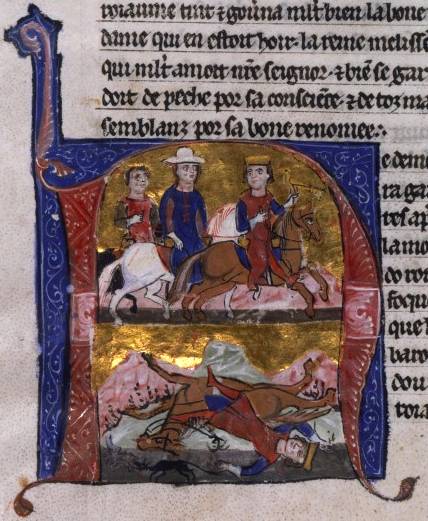 roiaume tint ⁊ gouuna mlt bien la bone
dame qui en estoit hoir · la reine meliss
qui mlt amott nre seignor · ⁊ bien se gar
doit de peche por sa conscience · ⁊ de toz ma
semblanz por sa bone renomee
R
e deme
ra ga
tres ap
la mo
do ro
foqu
que l
baro
dou
tora